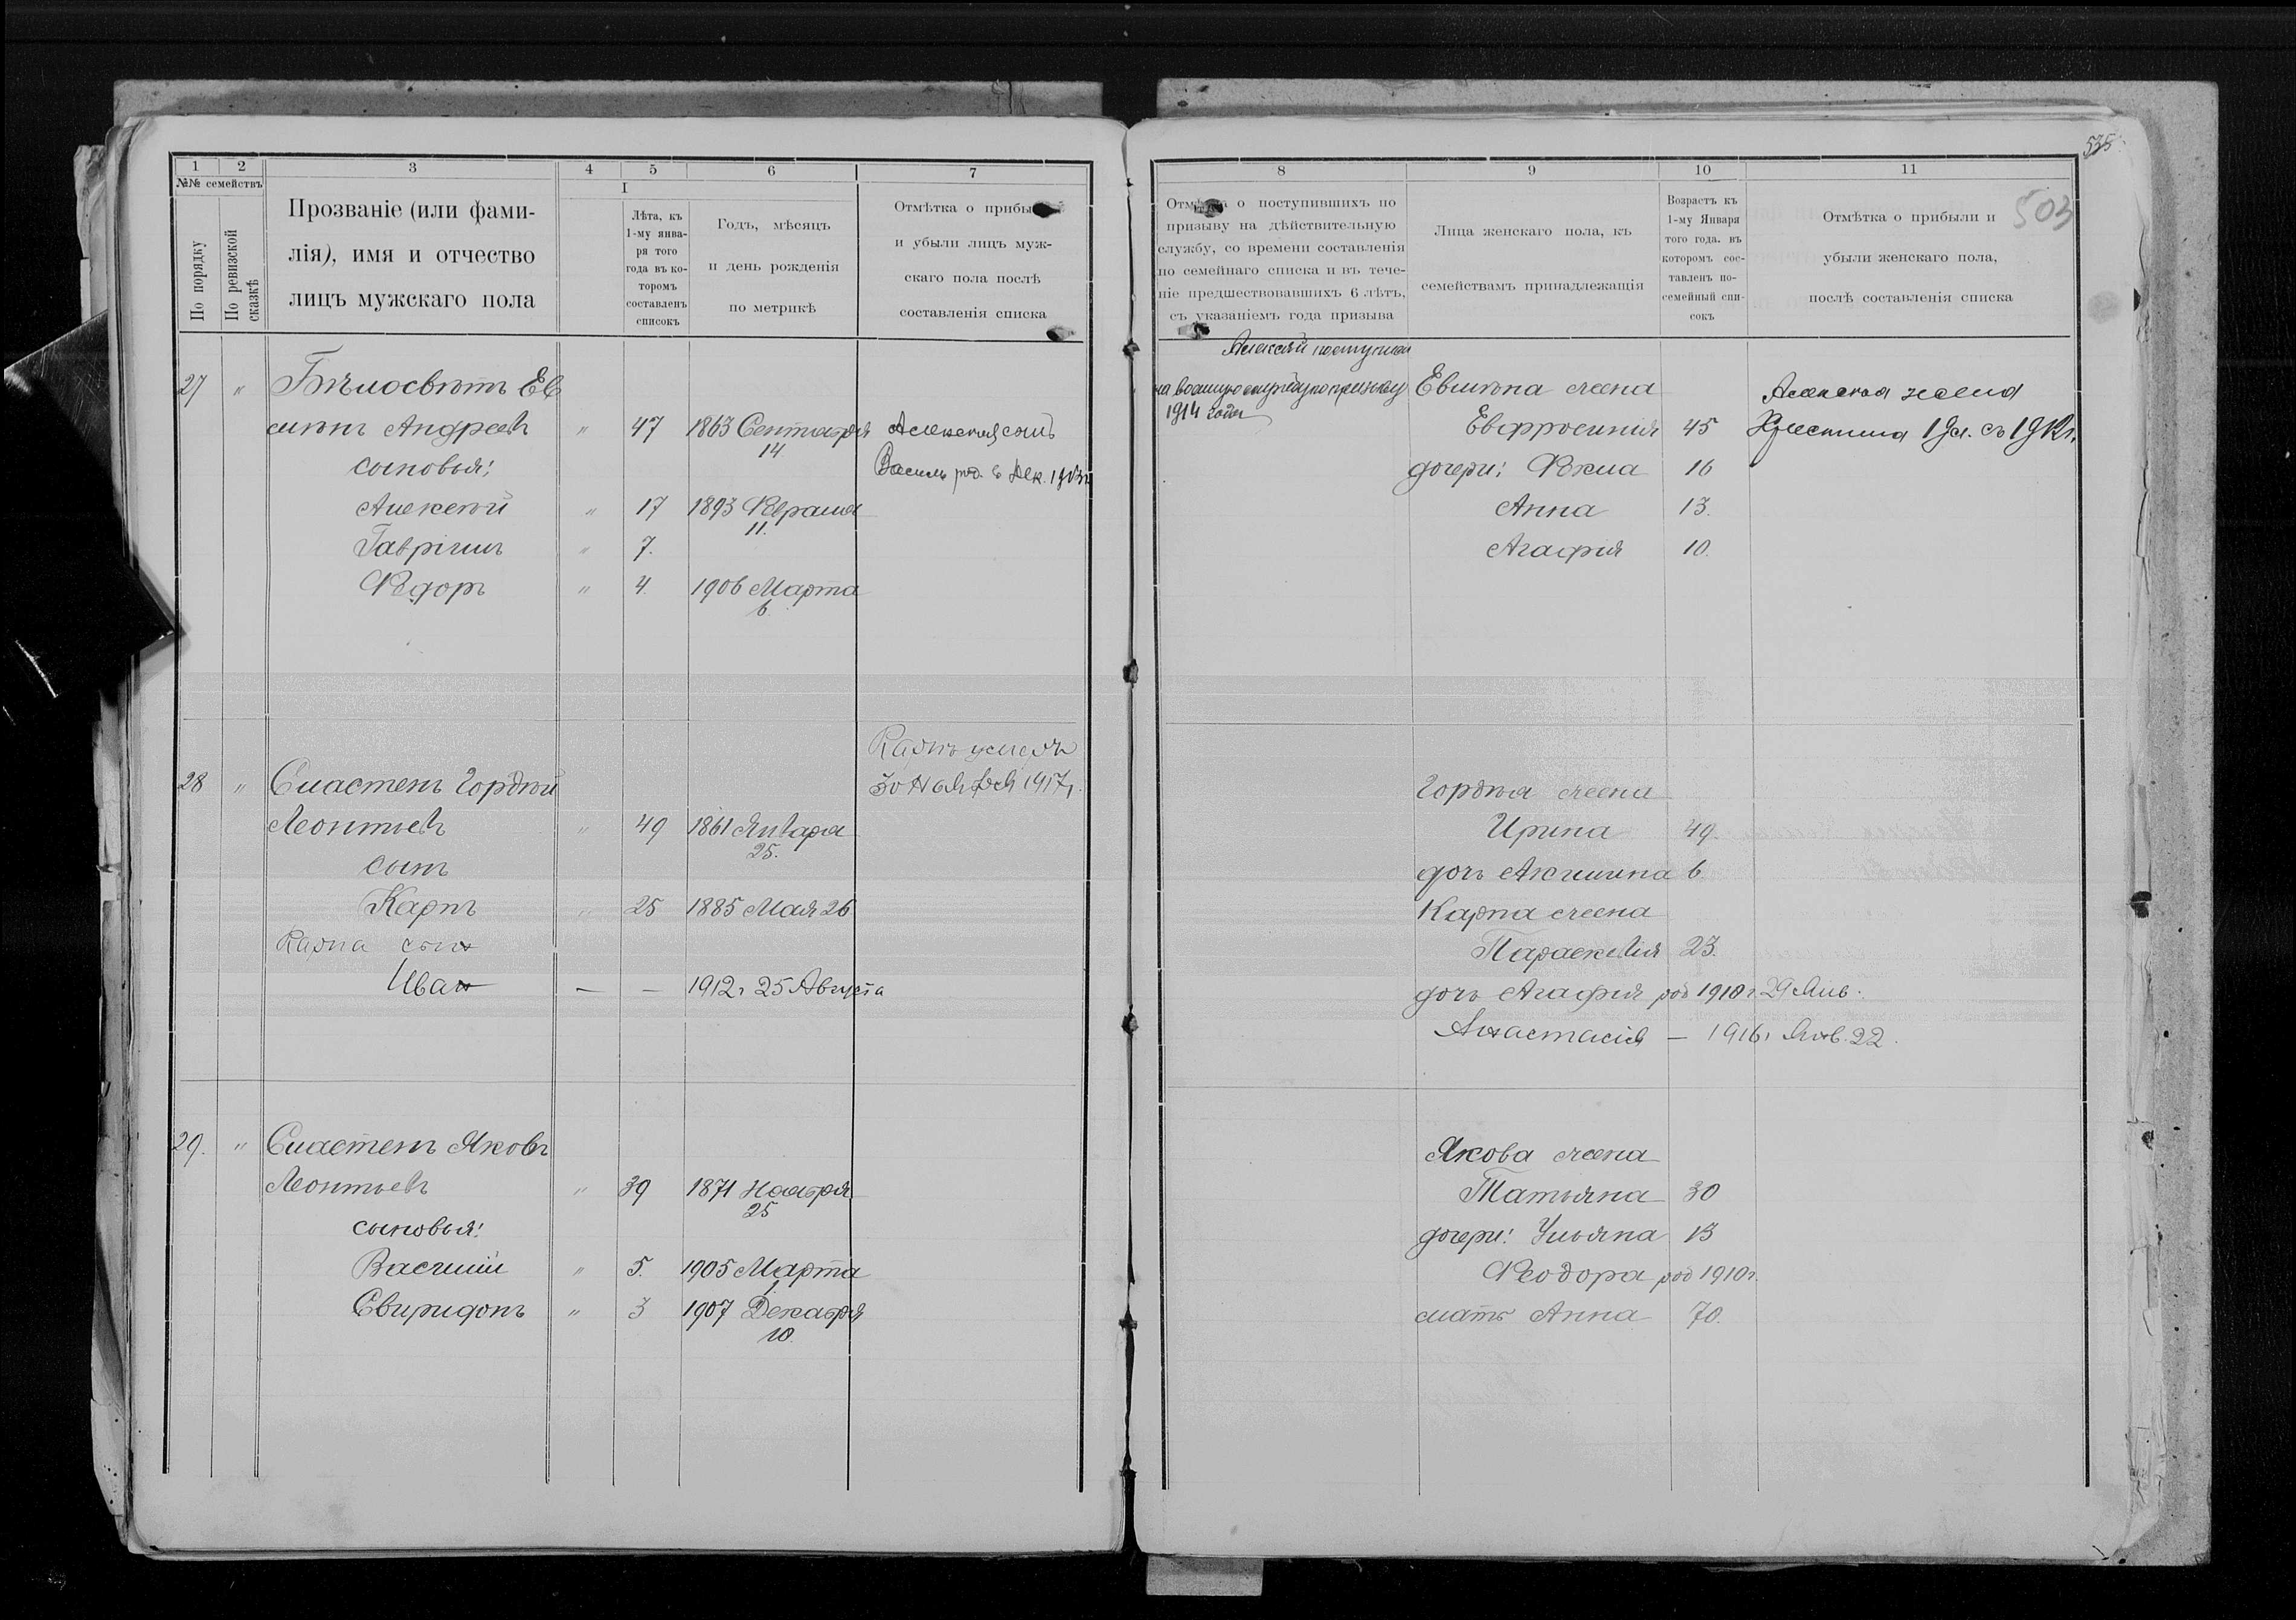 1 2 3 4 5 6 7
№№ семействъ
По порядку
По ревизской сказкѣ
Прозваніе (или фами-
лія), имя и отчество
лицъ мужскаго пола
I
Лѣта, къ
1-му янва-
ря того
года въ ко-
торомъ
составленъ
списокъ
Годъ, мѣсяцъ
и день рожденія
по метрикѣ
Отмѣтка о прибы
и убыли лицъ муж-
скаго пола послѣ
составленія списка
27 " Бѣлосвѣтъ Ев
симъ Андреевъ " 47 1863 Сентября Алексея сынъ
14
сыновья: Василь род. Дек. 1913
Алексѣй " 17 1893 Февраля
11.
Гавріилъ " 7.
Ѳедоръ " 4. 1906 Марта
6.
Карпъ умеръ
28 " Сластенъ Гордѣй 30 Ноября 1917 г.
Леонтьевъ " 49 1861 Января
25.
сынъ
Карпъ " 25 1885 Мая 26
Карпа сын
Иван — — 1912 г. 25 Августа
29. " Сластенъ Яковъ
Леонтьевъ " 39 1871 Ноября
25
сыновья:
Василій " 5. 1905 Марта
1
Свиридонъ " 3 1907 Декабря
10.
535
8 9 10 11
Отмѣтка о поступившихъ по
призыву на дѣйствительную
службу, со времени составленія
по семейнаго списка и въ тече-
ніе предшествовавшихъ 6 лѣтъ,
съ указаніемъ года призыва
Лица женскаго пола, къ
семействамъ принадлежащія
Возрастъ къ
1-му Января
того года. въ
которомъ сос-
тавленъ по-
семейный спи-
сокъ
Отмѣтка о прибыли и
убыли женскаго пола,
послѣ составленія списка
503
Алексѣй поступил
на военную службу по призыву Евсима жена Алексея жена
1914 года Евфросинія 45 Христина с 1912 г.
дочери: Ѳекла 16
Анна 13.
Агафія 10.
Гордѣя жена
Ирина 49.
дочь Акилина 6.
Карпа жена
Параскевія 23.
дочь Агафія род 1910 г. 29 Янв.
Анастасія — 1916 г. Янв. 22.
Якова жена
Татьяна 30
дочери: Ульяна 13
Ѳеодора род 1910 г.
мать Анна 70.